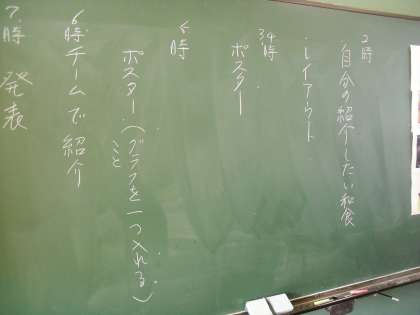 2時
自分の紹介したい和食
・レイアウト
3,4時
ポスター
5時
ポスター(グラフを一つ入れる。)
こと
6時チームで紹介
7時 発表